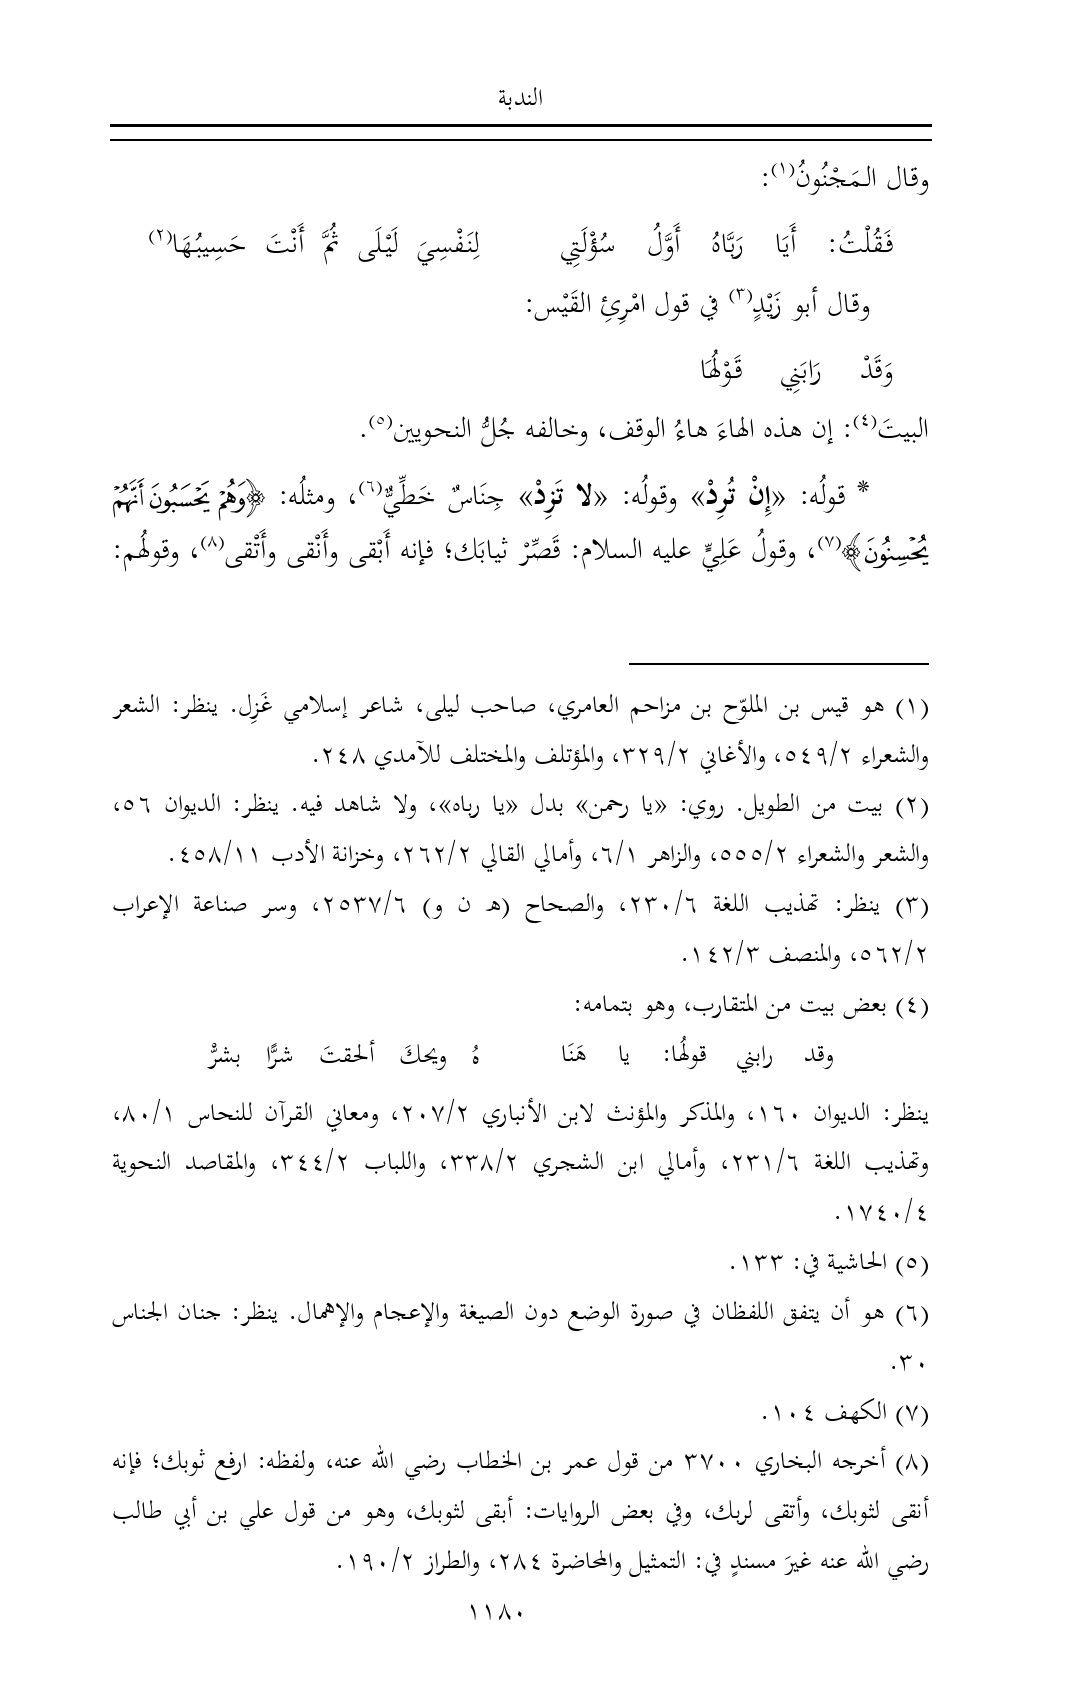 الندبة
وقال المَجْنُونُ(١):
فَقُلْتُ: أَيَا رَبَّاهُ أَوَّلُ سُؤْلَتِي لِنَفْسِيَ لَيْلَى ثُمَّ أَنْتَ حَسِيبُهَا(٢)
وقال أبو زَيْدٍ(٣) في قول امْرِئِ القَيْس:
وَقَدْ رَابَنِي قَوْلُهَا
البيتَ(٤): إن هذه الهاءَ هاءُ الوقف، وخالفه جُلُّ النحويين(٥).
* قولُه: «إِنْ تُرِدْ» وقولُه: «لا تَزِدْ» جِنَاسٌ خَطِّيٌّ(٦)، ومثلُه: ﴿وَهُمْ يَحْسَبُونَ أَنَّهُمْ
يُحْسِنُونَ﴾(٧)، وقولُ عَلِيٍّ عليه السلام: قَصِّرْ ثيابَك؛ فإنه أَبْقى وأَنْقى وأَتْقى(٨)، وقولُهم:
(١) هو قيس بن الملوّح بن مزاحم العامري، صاحب ليلى، شاعر إسلامي غَزِل. ينظر: الشعر
والشعراء ٥٤٩/٢، والأغاني ٣٢٩/٢، والمؤتلف والمختلف للآمدي ٢٤٨.
(٢) بيت من الطويل. روي: «يا رحمن» بدل «يا رباه»، ولا شاهد فيه. ينظر: الديوان ٥٦،
والشعر والشعراء ٥٥٥/٢، والزاهر ٦/١، وأمالي القالي ٢٦٢/٢، وخزانة الأدب ٤٥٨/١١.
(٣) ينظر: تهذيب اللغة ٢٣٠/٦، والصحاح (هـ ن و) ٢٥٣٧/٦، وسر صناعة الإعراب
٥٦٢/٢، والمنصف ١٤٢/٣.
(٤) بعض بيت من المتقارب، وهو بتمامه:
وقد رابني قولُها: يا هَنَا هُ ويحكَ ألحقتَ شرًّا بشرّْ
ينظر: الديوان ١٦٠، والمذكر والمؤنث لابن الأنباري ٢٠٧/٢، ومعاني القرآن للنحاس ٨٠/١،
وتهذيب اللغة ٢٣١/٦، وأمالي ابن الشجري ٣٣٨/٢، واللباب ٣٤٤/٢، والمقاصد النحوية
١٧٤٠/٤.
(٥) الحاشية في: ١٣٣.
(٦) هو أن يتفق اللفظان في صورة الوضع دون الصيغة والإعجام والإهمال. ينظر: جنان الجناس
٣٠.
(٧) الكهف ١٠٤.
(٨) أخرجه البخاري ٣٧٠٠ من قول عمر بن الخطاب رضي الله عنه، ولفظه: ارفع ثوبك؛ فإنه
أنقى لثوبك، وأتقى لربك، وفي بعض الروايات: أبقى لثوبك، وهو من قول علي بن أبي طالب
رضي الله عنه غيرَ مسندٍ في: التمثيل والمحاضرة ٢٨٤، والطراز ١٩٠/٢.
١١٨٠